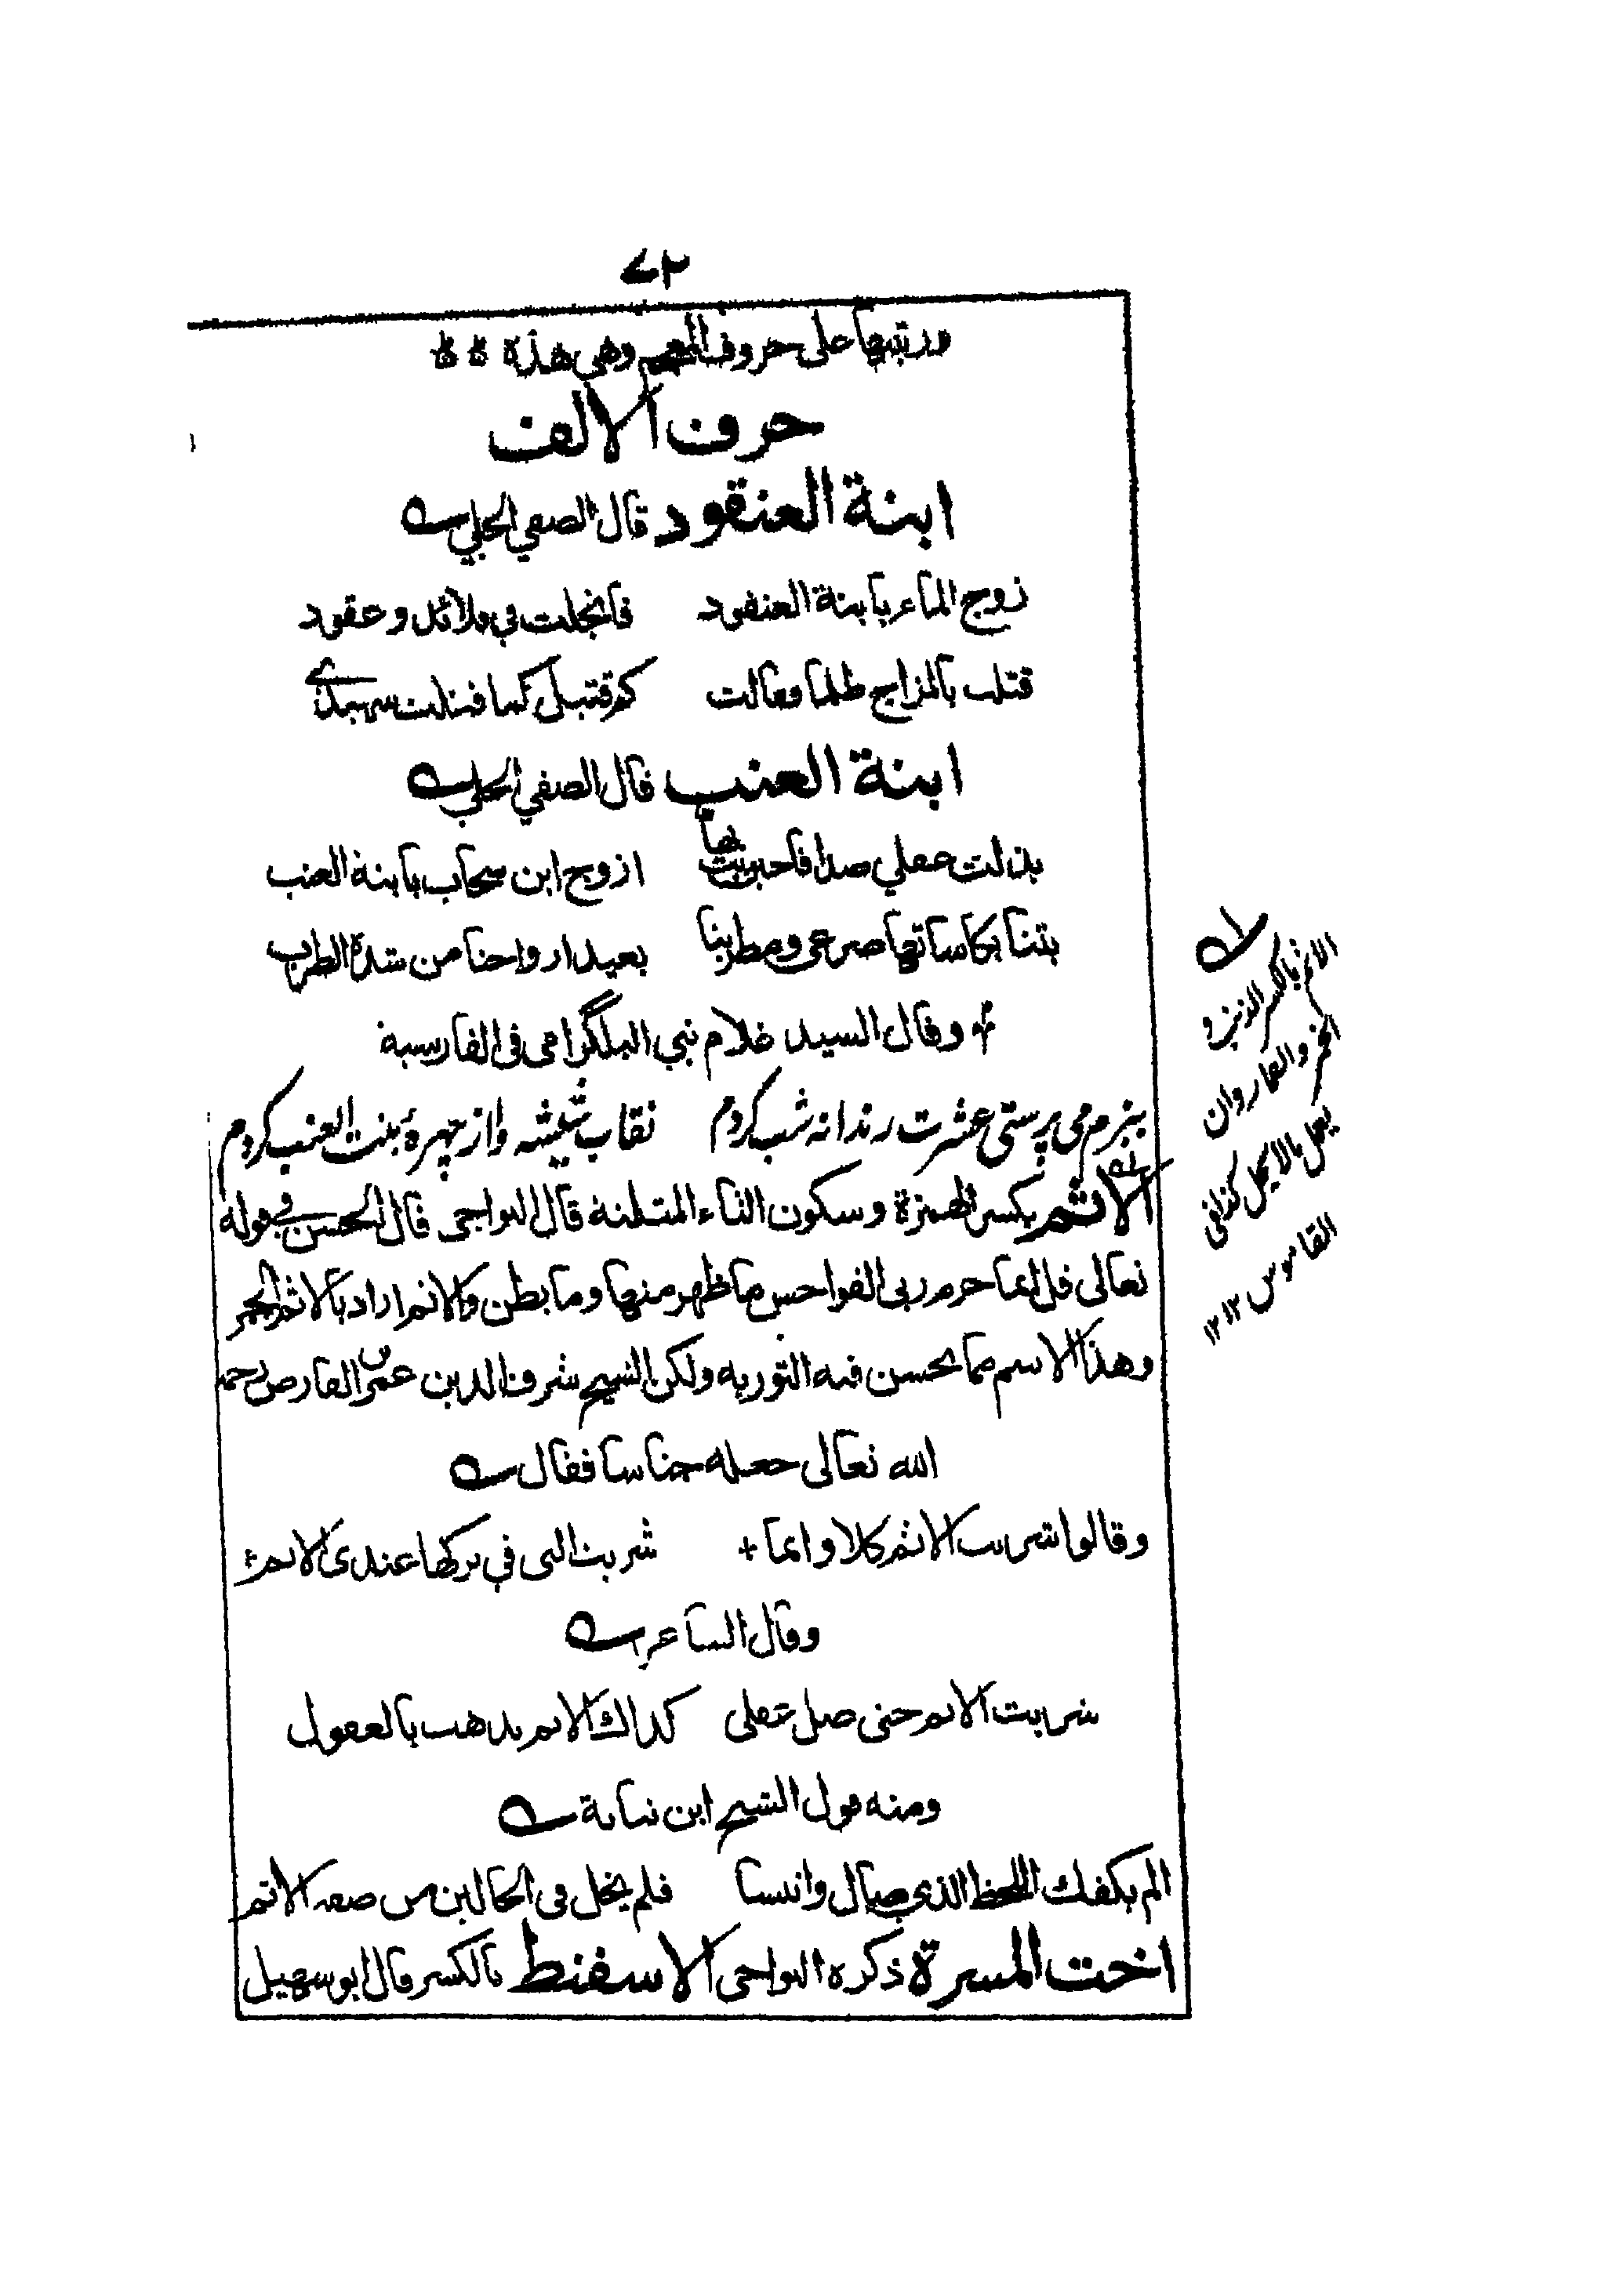 ٧٢
ورتبتها على حروف المعجم وهي هذه
حرف الالف
ابنة العنقود قال الصفي الحلي
زوج الماء بابنة العنقود فانجلت في قلائد وعقود
قتلت بالمزاج ظلما وقالت كم قتيل كما قتلت شهيد
ابنة العنب قال الصفي الحلي
بذلت عقلي صداقا حين بت بها ازوج ابن سحاب بابنة العنب
بتنا بكاساتها صرعى ومطربنا يعيد ارواحنا من شدة الطرب
وقال السيد غلام نبي البلگرامي في الفارسية
ببزم می پرستی عشرت رندانه شب کردم نقاب شیشه واز چهرهٔ بنت العنب کردم
الاثم بكسر الهمزة وسكون الثاء المثلثة قال النواجي قال الحسن في قوله
تعالى قل انما حرم ربي الفواحش ما ظهر منها وما بطن والاثم اراد بالاثم الخمر
وهذا الاسم مما يحسن فيه التورية ولكن الشيخ شرف الدين عمر الفارض رحمه
الله تعالى جعله جناسا فقال
وقالوا شربت الاثم كلا وانما شربت التي في تركها عندي الاثم
وقال الشاعر
شربت الاثم حتى ضل عقلي كذاك الاثم يذهب بالعقول
ومنه قول الشيخ ابن نباتة
الم يكفك اللحظ الذي صال وانتشا فلم يخل في الحالين من صفة الاثم
اخت المسرة ذكره النواجي الاسفنط بالكسر قال ابو سهيل
الاثم بالكسر الذنب و
الخمر والقمار وان
يعمل ما لا يحل كذا في
القاموس ١٢ ١٢